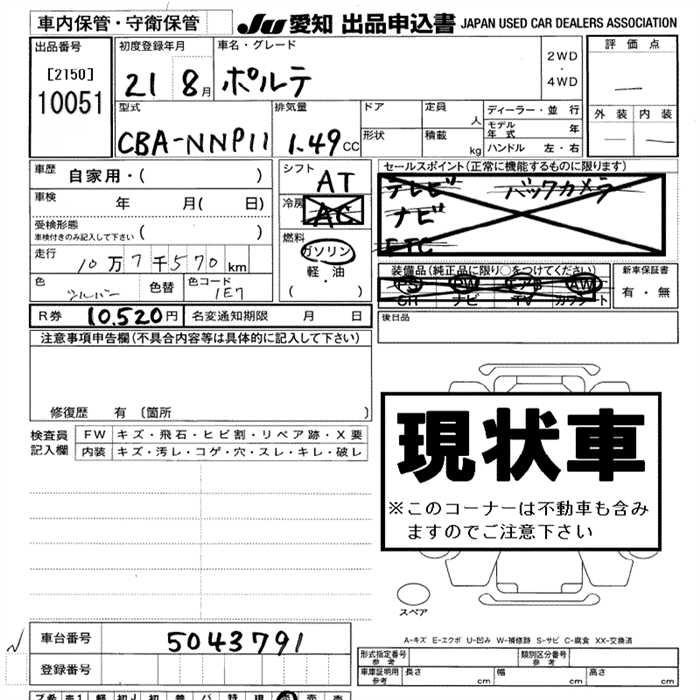 車内保管・守衛保管
JU 愛知 出品申込書 JAPAN USED CAR DEALERS ASSOCIATION
出品番号
[2150]
10051
初度登録年月
21 8月
車名・グレード
ポルテ
2WD
・
4WD
評価点
—
外装 内装
— —
型式
CBA-NNP11
排気量
1.49cc
ドア
形状
定員
人
積載
kg
ディーラー・並行
モデル年式 年
ハンドル 左・右
車歴 自家用・( )
車検 年 月( 日)
受検形態
車検付きのみ記入して下さい ( )
走行 10万7千570km
色 シルバー 色替 色コード 1E7
シフト AT
冷房 AC
燃料
ガソリン
軽・油
( )
セールスポイント(正常に機能するものに限ります)
テレビ バックカメラ
ナビ
ETC
装備品(純正品に限り○をつけてください)
PS PW エアB AW
SR ナビ TV カワシート
新車保証書
有・無
R券 10.520円 名変通知期限 月 日
後日品
注意事項申告欄(不具合内容等は具体的に記入して下さい)
修復歴 有 〔箇所 〕
検査員記入欄
FW キズ・飛石・ヒビ割・リペア跡・X要
内装 キズ・汚レ・コゲ・穴・スレ・キレ・破レ
現状車
※このコーナーは不動車も含み
ますのでご注意下さい
スペア
A-キズ E-エクボ U-凹み W-補修跡 S-サビ C-腐食 XX-交換済
車台番号 5043791
登録番号
形式指定番号 参考 類別区分番号 参考
車庫証明用 参考 長さ cm 幅 cm 高さ cm